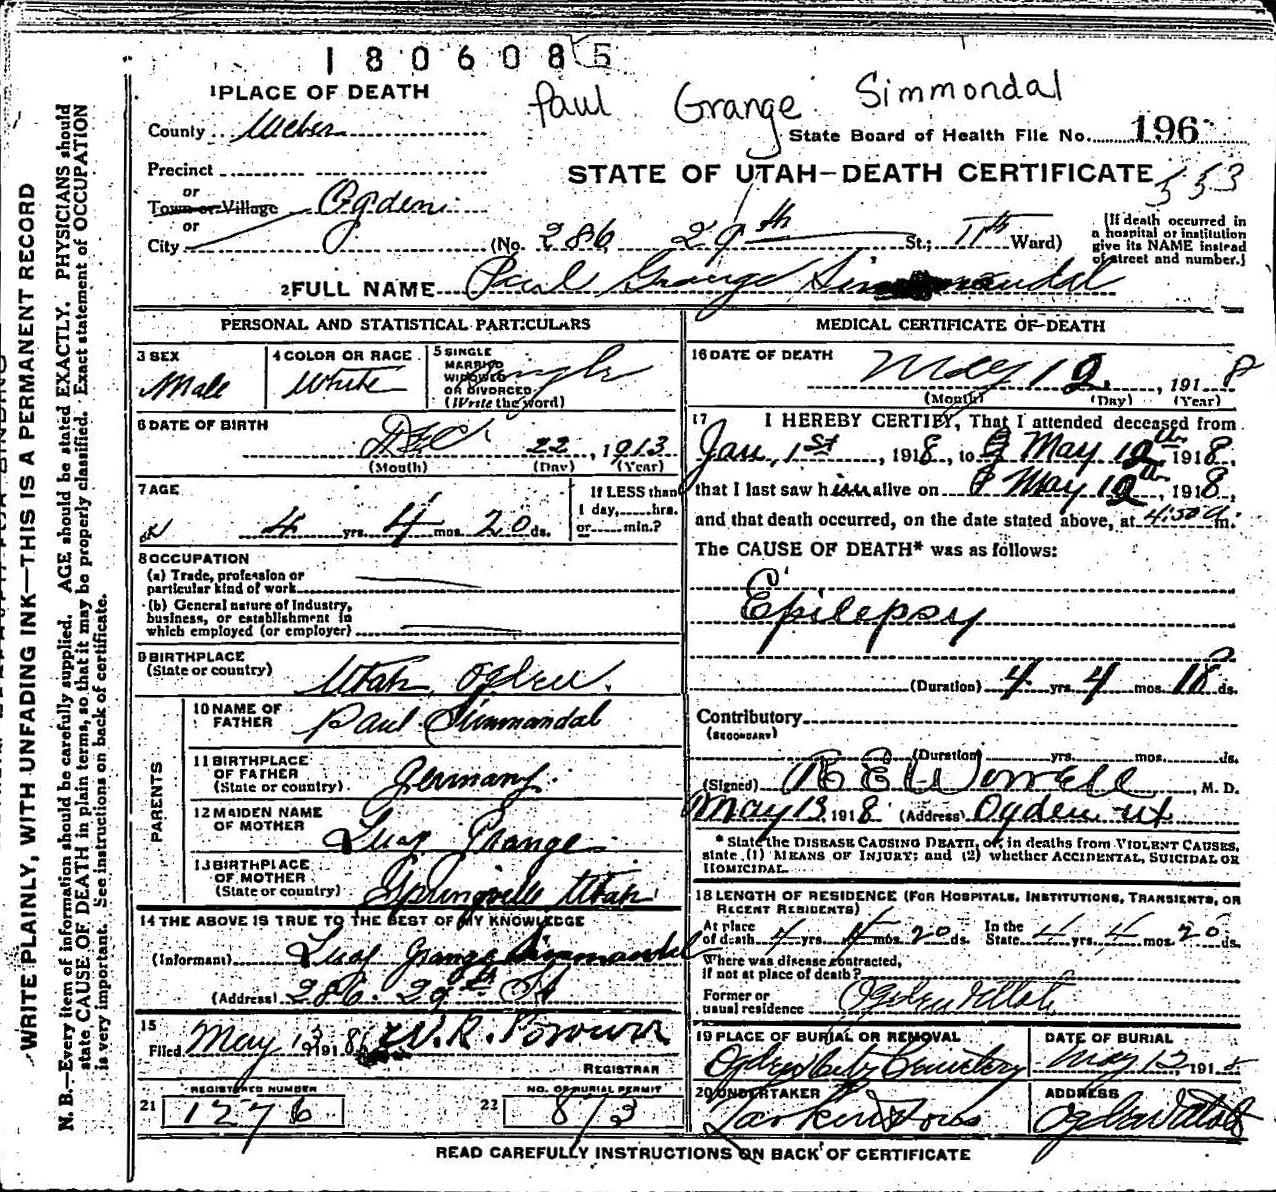 1806085
Paul Grange Simmondal
1 PLACE OF DEATH
County Weber
State Board of Health File No. 196
Precinct
STATE OF UTAH—DEATH CERTIFICATE 553
or
Town or Village Ogden
or
City
(No. 286 29th St.; 11th Ward)
(If death occurred in
a hospital or institution
give its NAME instead
of street and number.)
2 FULL NAME Paul Grange Simmandal
PERSONAL AND STATISTICAL PARTICULARS
3 SEX
Male
4 COLOR OR RACE
White
5 SINGLE
MARRIED
WIDOWED
OR DIVORCED
(Write the word)
Single
6 DATE OF BIRTH
Dec. 22, 1913
(Month) (Day) (Year)
7 AGE
4 yrs. 4 mos. 20 ds.
If LESS than
1 day, hrs.
or min.?
8 OCCUPATION
(a) Trade, profession or
particular kind of work
(b) General nature of Industry,
business, or establishment in
which employed (or employer)
9 BIRTHPLACE
(State or country)
Utah, Ogden.
PARENTS
10 NAME OF
FATHER
Paul Simmandal
11 BIRTHPLACE
OF FATHER
(State or country)
Germany.
12 MAIDEN NAME
OF MOTHER
Grange
13 BIRTHPLACE
OF MOTHER
(State or country)
Springville Utah
14 THE ABOVE IS TRUE TO THE BEST OF MY KNOWLEDGE
(Informant) Grange Simmandal
(Address) 286. 29th St
15
Filed May 13 1918 W. R. Brown
REGISTRAR
REGISTERED NUMBER
21 1276
NO. OF BURIAL PERMIT
22 813
MEDICAL CERTIFICATE OF DEATH
16 DATE OF DEATH
May 12, 1918
(Month) (Day) (Year)
17 I HEREBY CERTIFY, That I attended deceased from
Jan. 1st, 1918, to May 12th 1918,
that I last saw him alive on May 12th, 1918,
and that death occurred, on the date stated above, at 4:50 a m.
The CAUSE OF DEATH* was as follows:
Epilepsy
(Duration) 4 yrs. 4 mos. 18 ds.
Contributory
(SECONDARY)
(Duration) yrs. mos. ds.
(Signed) R E Worrell, M. D.
May 13 1918 (Address) Ogden ut
* State the DISEASE CAUSING DEATH, or, in deaths from VIOLENT CAUSES,
state (1) MEANS OF INJURY; and (2) whether ACCIDENTAL, SUICIDAL OR
HOMICIDAL.
18 LENGTH OF RESIDENCE (FOR HOSPITALS, INSTITUTIONS, TRANSIENTS, OR
RECENT RESIDENTS)
At place
of death 4 yrs. 4 mos. 20 ds.
In the
State 4 yrs. 4 mos. 20 ds.
Where was disease contracted,
if not at place of death?
Former or
usual residence Ogden Utah
19 PLACE OF BURIAL OR REMOVAL
Ogden City Cemetery
DATE OF BURIAL
May 12 191
20 UNDERTAKER
Larkin & Sons
ADDRESS
Ogden Utah
READ CAREFULLY INSTRUCTIONS ON BACK OF CERTIFICATE
WRITE PLAINLY, WITH UNFADING INK—THIS IS A PERMANENT RECORD
N. B.—Every item of information should be carefully supplied. AGE should be stated EXACTLY. PHYSICIANS should
state CAUSE OF DEATH in plain terms, so that it may be properly classified. Exact statement of OCCUPATION
is very important. See instructions on back of certificate.